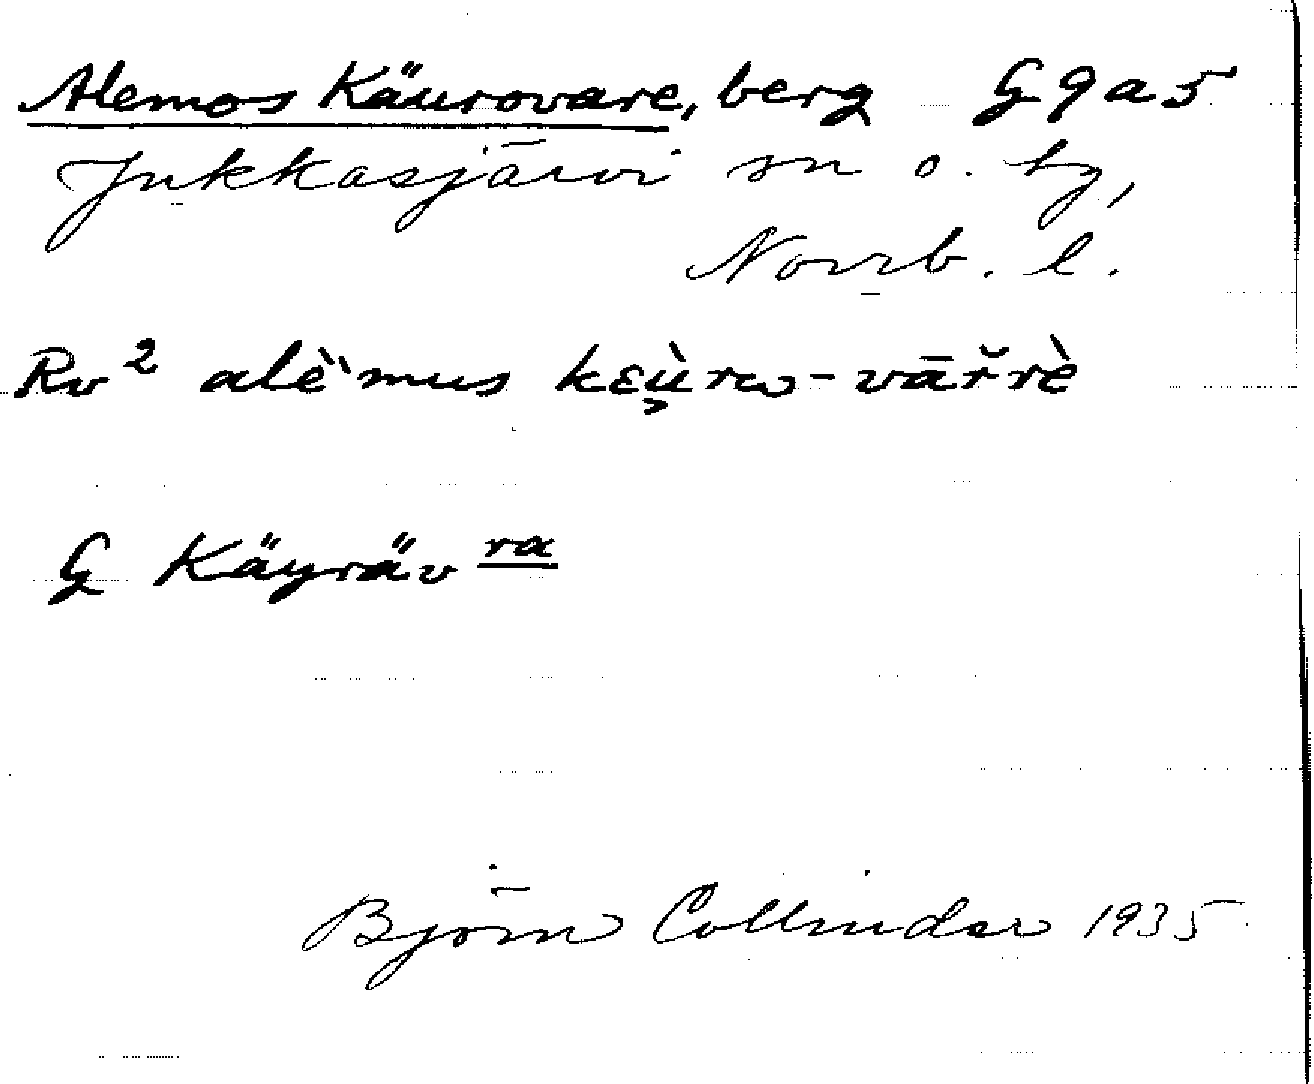 Alemos Käurovare, berg G 9 a 5
Jukkasjärvi sn o. by,
Norrb. l.
Rv² alè̀mus kɛù̯rω-vāřrè
G Käyräv ra
Björn Collinder 1935